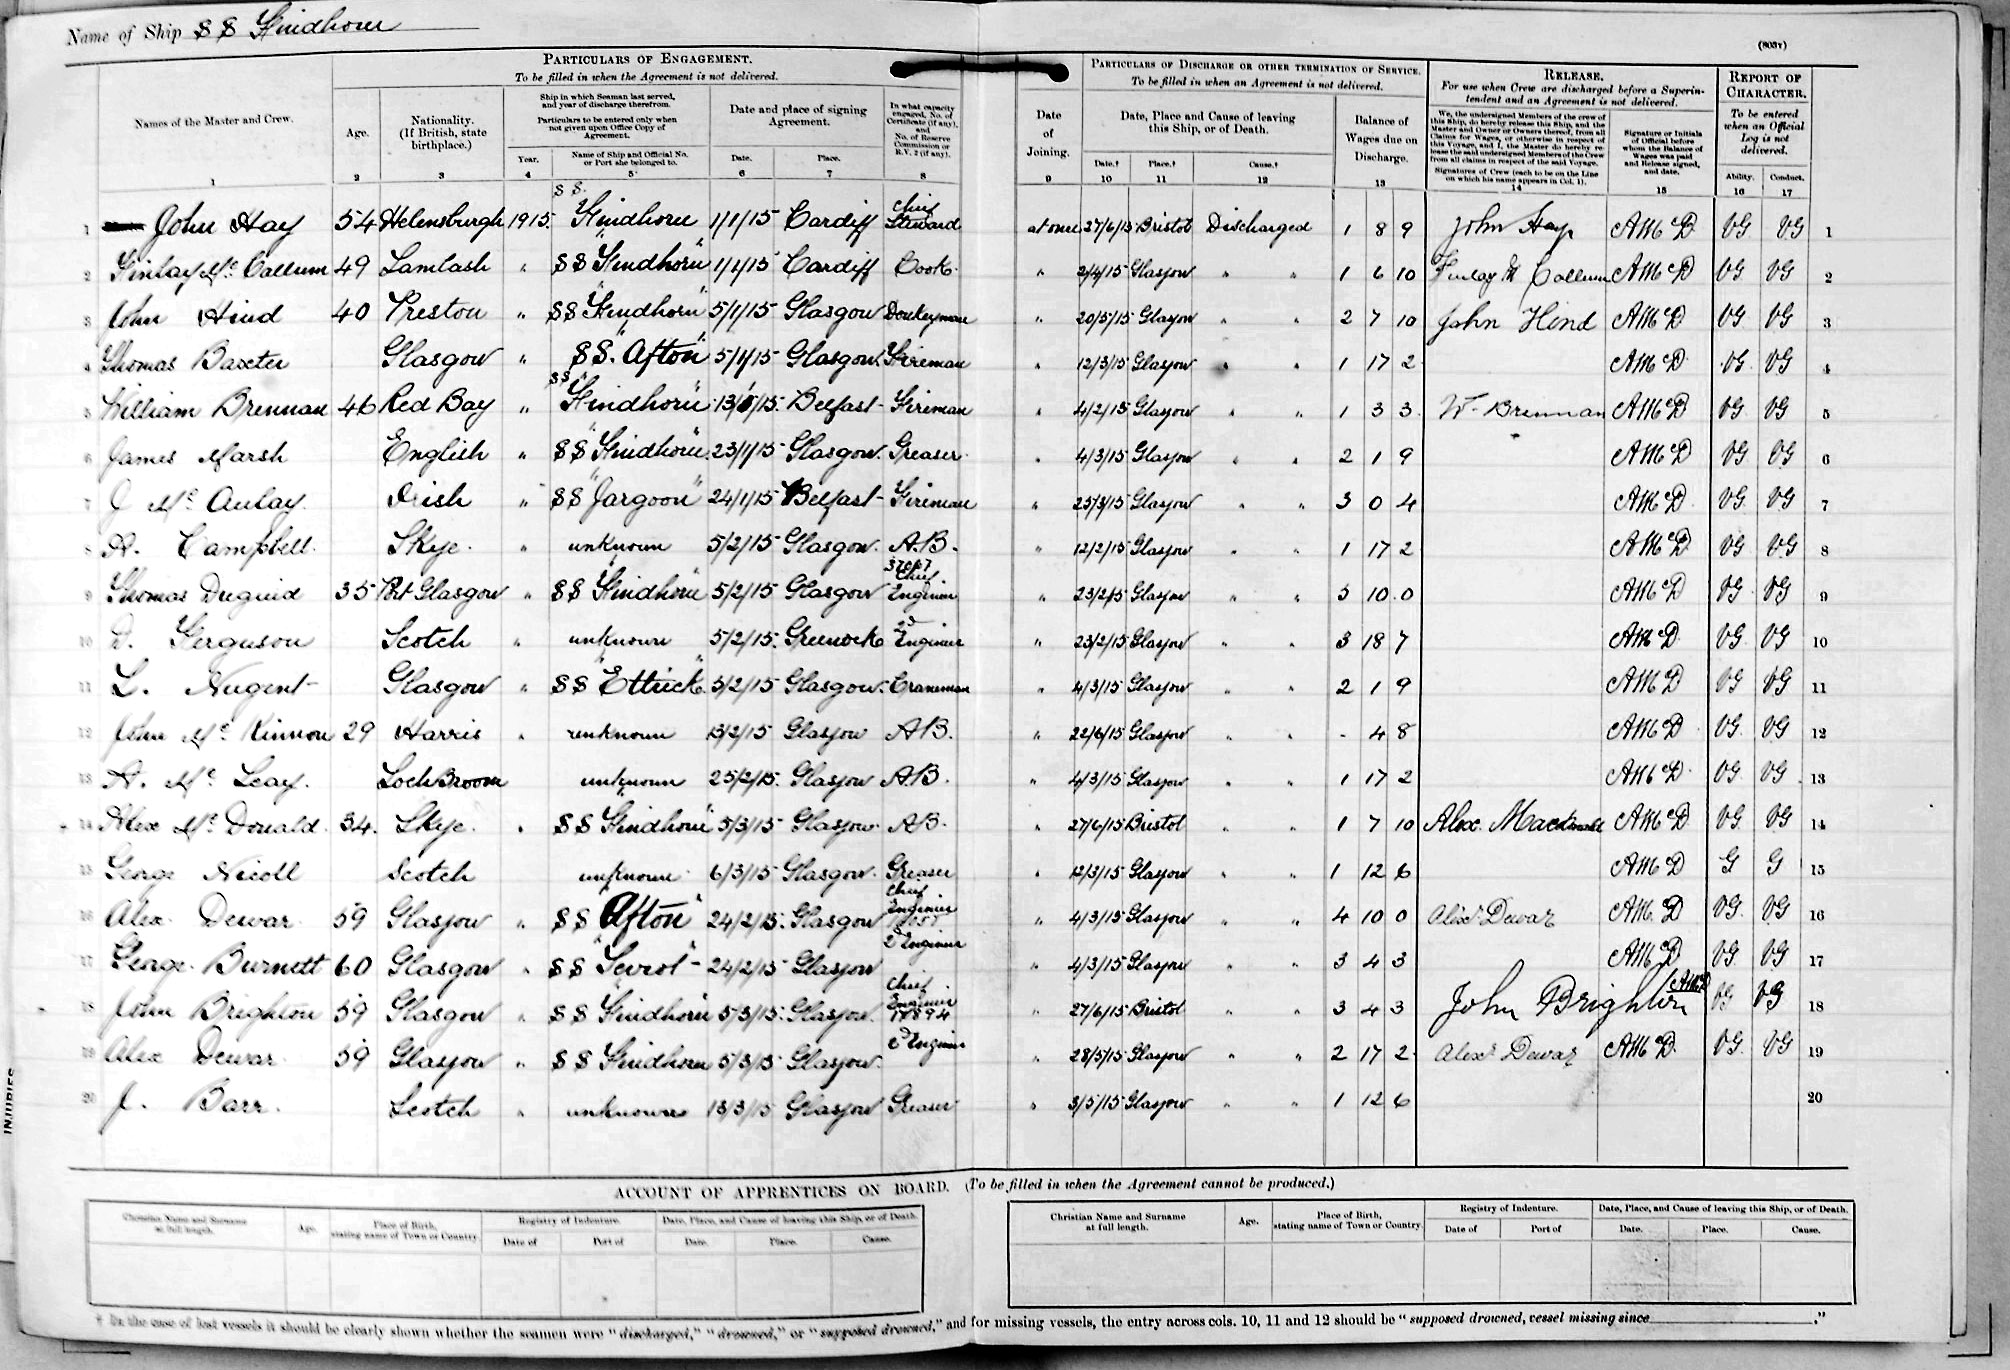 Name of Ship SS Findhorn
(803v)
PARTICULARS OF ENGAGEMENT.
To be filled in when the Agreement is not delivered.
PARTICULARS OF DISCHARGE OR OTHER TERMINATION OF SERVICE.
To be filled in when an Agreement is not delivered.
RELEASE.
For use when Crew are discharged before a Superintendent and an Agreement is not delivered.
REPORT OF CHARACTER.
To be entered when an Official Log is not delivered.
Names of the Master and Crew.
Age.
Nationality. (If British, state birthplace.)
Ship in which Seaman last served, and year of discharge therefrom.
Particulars to be entered only when not given upon Office Copy of Agreement.
Year.
Name of Ship and Official No. or Port she belonged to.
Date and place of signing Agreement.
Date.
Place.
In what capacity engaged, No. of Certificate (if any), and No. of Reserve Commission or R.V. 2 (if any).
Date of Joining.
Date, Place, and Cause of leaving this Ship, or of Death.
Date.† Place.† Cause.†
Balance of Wages due on Discharge.
We, the undersigned Members of the crew of this Ship, do hereby release this Ship, and the Master and Owner or Owners thereof, from all Claims for Wages, or otherwise in respect of this Voyage, and I, the Master do hereby release the said undersigned Members of the Crew from all claims in respect of the said Voyage.
Signatures of Crew (each to be on the Line on which his name appears in Col. 1).
Signature or Initials of Official before whom the Balance of Wages was paid and Release signed, and date.
Ability. Conduct.
1 2 3 4 5 6 7 8 9 10 11 12 13 14 15 16 17
1 John Hay 54 Helensburgh 1915. SS. Findhorn 1/1/15 Cardiff Chief Steward at once 27/6/15 Bristol Discharged 1 8 9 John Hay AMcD VG VG 1
2 Finlay McCallum 49 Lamlash " SS "Findhorn" 1/1/15 Cardiff Cook " 2/4/15 Glasgow " " 1 6 10 Finlay McCallum AMcD VG VG 2
3 John Hind 40 Preston " SS "Findhorn" 5/1/15 Glasgow Donkeyman " 20/5/15 Glasgow " " 2 7 10 John Hind AMcD VG VG 3
4 Thomas Baxter Glasgow " SS. "Afton" 5/1/15 Glasgow Fireman " 12/3/15 Glasgow " " 1 17 2 AMcD VG VG 4
5 William Brennan 46 Red Bay " SS "Findhorn" 13/1/15 Belfast Fireman " 4/2/15 Glasgow " " 1 3 3 W. Brennan AMcD VG VG 5
6 James Marsh English " SS "Findhorn" 23/1/15 Glasgow Greaser " 4/3/15 Glasgow " " 2 1 9 AMcD VG VG 6
7 J McAulay Irish " SS "Jargoon" 24/1/15 Belfast Fireman " 23/3/15 Glasgow " " 3 0 4 AMcD VG VG 7
8 A. Campbell Skye " unknown 5/2/15 Glasgow A.B. " 12/2/15 Glasgow " " 1 17 2 AMcD VG VG 8
9 Thomas Duguid 35 Port Glasgow " SS "Findhorn" 5/2/15 Glasgow Chief Engineer " 23/2/15 Glasgow " " 5 10 0 AMcD VG VG 9
10 D. Ferguson Scotch " unknown 5/2/15 Greenock 2d Engineer " 23/2/15 Glasgow " " 3 18 7 AMcD VG VG 10
11 L. Nugent Glasgow " SS "Ettrick" 5/2/15 Glasgow Craneman " 4/3/15 Glasgow " " 2 1 9 AMcD VG VG 11
12 John McKinnon 29 Harris " unknown 13/2/15 Glasgow A.B. " 22/6/15 Glasgow " " - 4 8 AMcD VG VG 12
13 A. McLeay Loch Broom unknown 25/2/15 Glasgow A.B. " 4/3/15 Glasgow " " 1 17 2 AMcD VG VG 13
14 Alex McDonald 34 Skye " SS "Findhorn" 5/3/15 Glasgow A.B. " 27/6/15 Bristol " " 1 7 10 Alex. Macdonald AMcD VG VG 14
15 George Nicoll Scotch unknown 6/3/15 Glasgow Greaser " 12/3/15 Glasgow " " 1 12 6 AMcD G G 15
16 Alex Dewar 59 Glasgow " SS "Afton" 24/2/15 Glasgow Chief Engineer " 4/3/15 Glasgow " " 4 10 0 Alexr Dewar AMcD VG VG 16
17 George Burnett 60 Glasgow " SS 24/2/15 Glasgow 2d Engineer " 4/3/15 Glasgow " " 3 4 3 AMcD VG VG 17
18 John Brighton 59 Glasgow " SS "Findhorn" 5/3/15 Glasgow Chief Engineer " 27/6/15 Bristol " " 3 4 3 John Brighton AMcD VG VG 18
19 Alex Dewar 59 Glasgow " SS Findhorn 5/3/15 Glasgow 2d Engineer " 28/5/15 Glasgow " " 2 17 2 Alexr Dewar AMcD VG VG 19
20 J. Barr. Scotch " unknown 13/3/15 Glasgow Greaser " 3/5/15 Glasgow " " 1 12 6 20
INJURIES
ACCOUNT OF APPRENTICES ON BOARD. (To be filled in when the Agreement cannot be produced.)
Christian Name and Surname at full length. Age. Place of Birth, stating name of Town or Country. Registry of Indenture. Date, Place, and Cause of leaving this Ship, or of Death.
Date of Port of Date. Place. Cause.
Christian Name and Surname at full length. Age. Place of Birth, stating name of Town or Country. Registry of Indenture. Date, Place, and Cause of leaving this Ship, or of Death.
Date of Port of Date. Place. Cause.
† In the case of lost vessels it should be clearly shown whether the seamen were "discharged," "drowned," or "supposed drowned," and for missing vessels, the entry across cols. 10, 11 and 12 should be "supposed drowned, vessel missing since ."